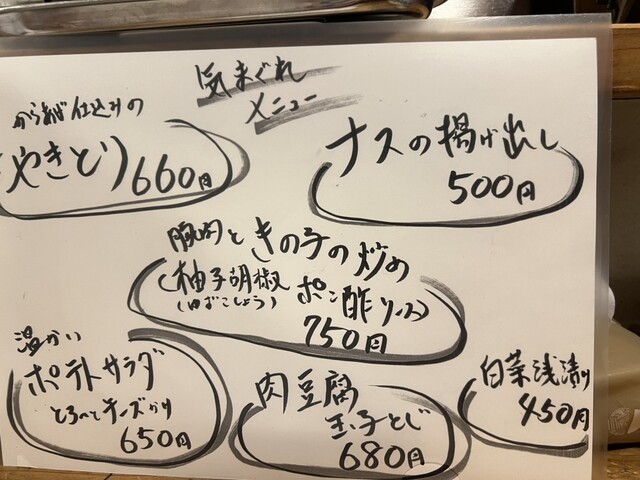 気まぐれ
メニュー
から揚げ仕込みの
やきとり 660円
ナスの揚げ出し
500円
豚肉ときの子の炒め
(柚子胡椒 ポン酢ソース)
(ゆずこしょう)
750円
温かい
ポテトサラダ
とろ〜とチーズがけ
650円
肉豆腐
玉子とじ
680円
白菜浅漬け
450円